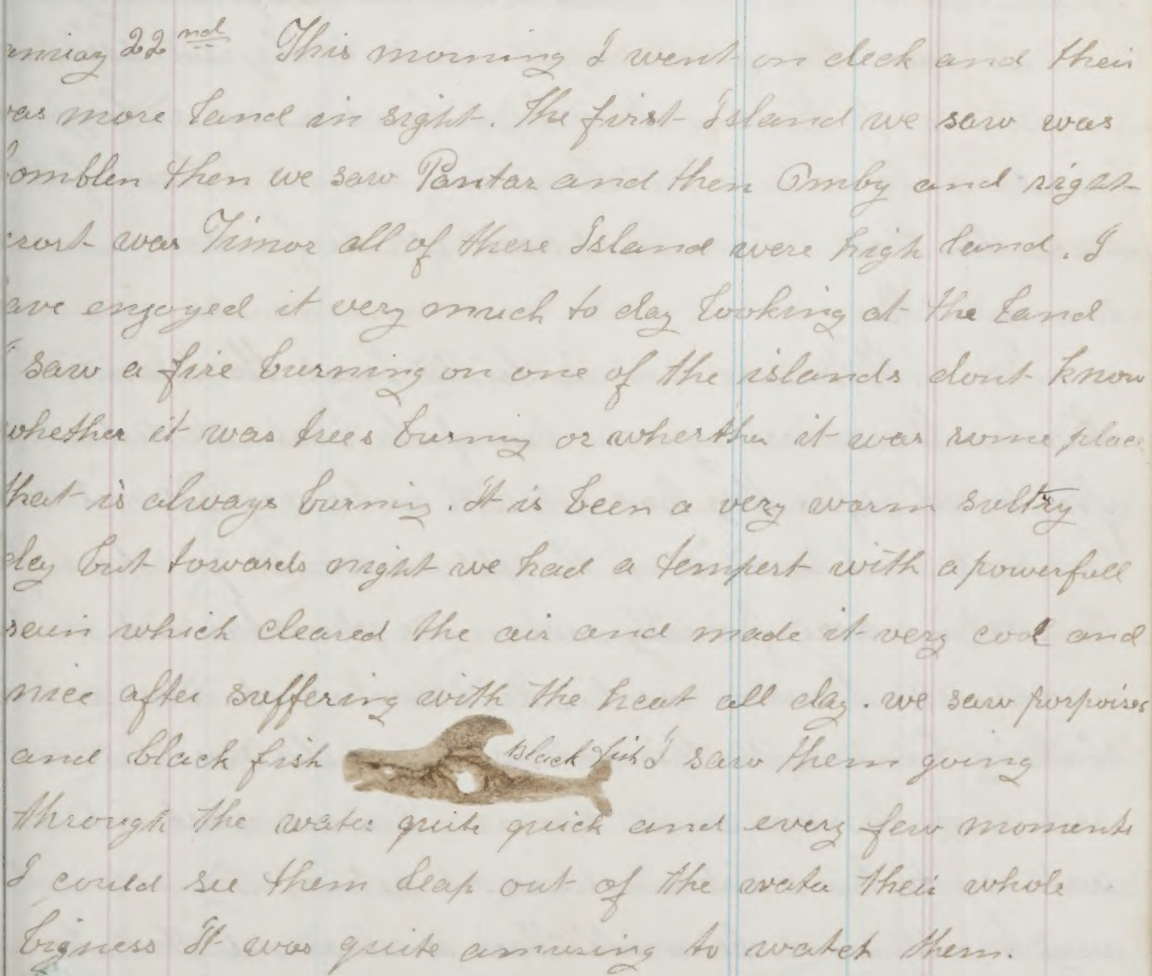 22nd This morning I went on deck and their
was more land in sight. The first Island we saw was
omblen then we saw Pantar and then Omby and right
was Timor all of these Island were high land. I
ave enjoyed it very much to day looking at the land
saw a fire burning on one of the islands dont know
whether it was trees burning or wherther it was some place
that is always burning. It is been a very warm sultry
day but towards night we had a tempest with a powerfull
rain which cleared the air and made it very cool and
nice after suffering with the heat all day. we saw porpoises
and black fish Black fish I saw them going
through the water quite quick and every few moments
I could see them leap out of the water their whole
bigness It was quite amusing to watch them.